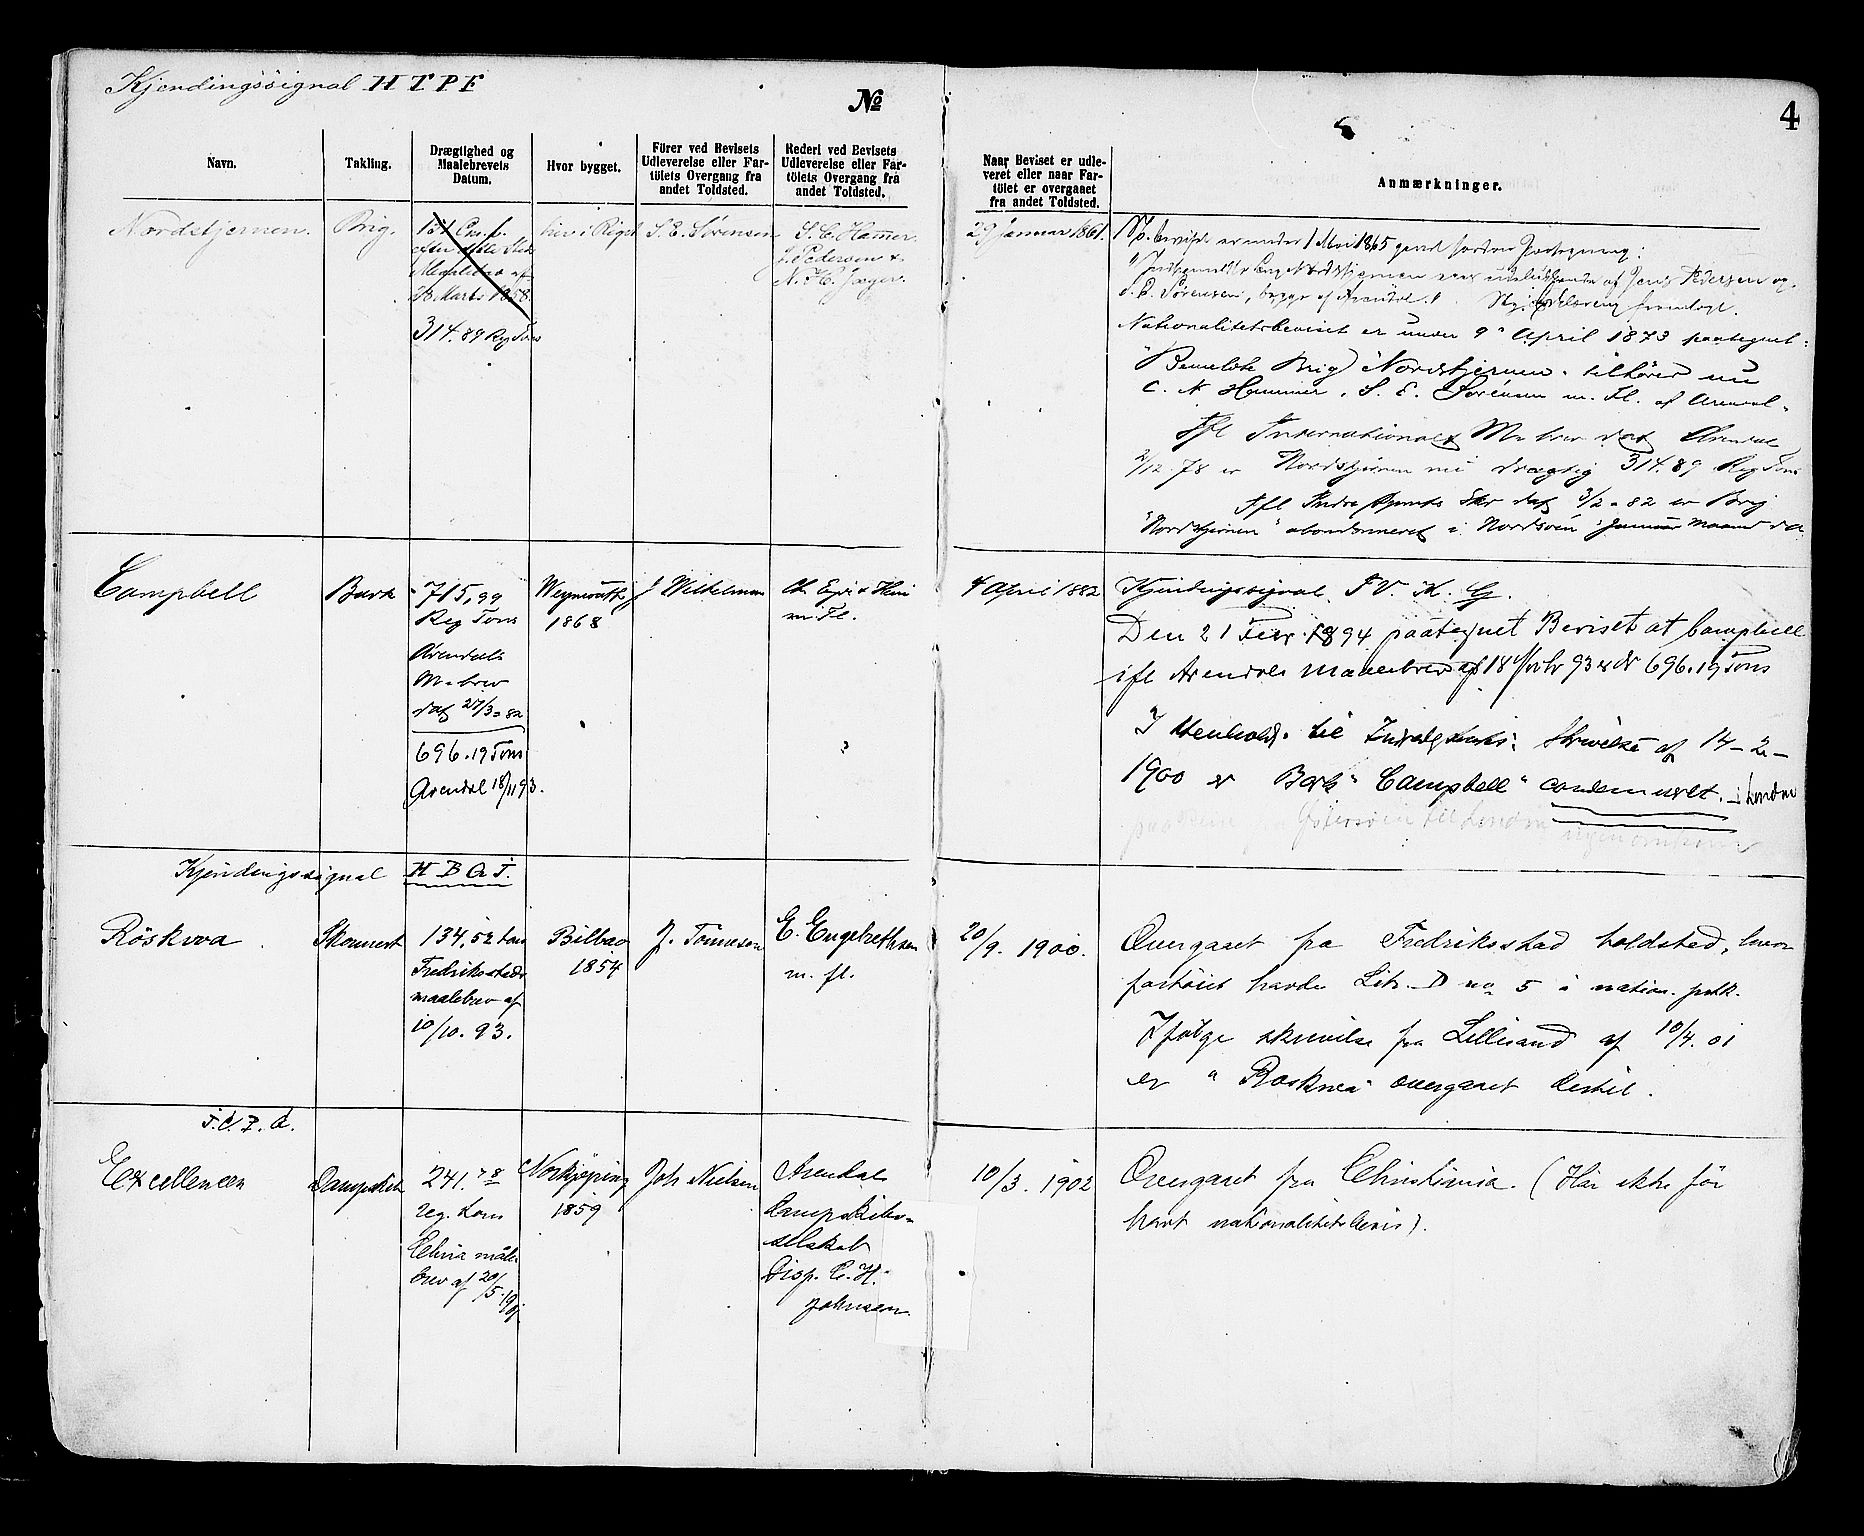 Kjendingssignal H T P F
No
4
Navn.
Takling.
Drægtighed og
Maalebrevets
Datum.
Hvor bygget.
Fører ved Bevisets
Udleverelse eller Far-
töiets Overgang fra
andet Toldsted.
Rederi ved Bevisets
Udleverelse eller Far-
töiets Overgang fra
andet Toldsted.
Naar Beviset er udle-
veret eller naar Far-
töiet er overgaaet
fra andet Toldsted.
Anmærkninger.
Nordstjernen.
Brig.
af
Marts 1858.
314.89 Reg Tons
her i Riget
S. E. Sörensen
S. C. Hamer.
J. Pedersen &
N. H. Jæger.
29 januar 1861.
er under 1 Mai 1865
af Jens Pedersen og
S. E. Sörensen, begge af Arendal.
Nationalitetsbeviset er under 9 April 1873 paategnet:
"Bemeldte Brig Nordstjernen tilhører nu
C. N Hammer, S. E. Sörensen m. Fl. af Arendal"
Ifl Internationalt M-brev dat Arendal
2/12 78 er Nordstjernen nu drægtig 314.89 Reg Tons
Ifl Skr dat 3/2-82 er Brig
"Nordstjernen" abandonneret i Nordsöen i Januar Maaned
Campbell
Bark
715,99
Reg Tons
Arendals
M-brev
dat 27/3-82
696.19 Tons
Arendal 18/11 93.
Weymouth
1868
J Wilhelmsen
m. Fl.
4 April 1882
Kjendingssignal. J V. K. G.
Den 21 Febr. 1894 paategnet Beviset at Campbell
ifl Arendals Maalebrev af 18 Novbr 93 er dr 696.19 Tons
I Henhold til Skrivelse af 14-2-
1900 er Bark "Campbell" condemneret. i London
Östersöen til London
Kjendingssignal H B Q T.
Röskva
Skonnert
134,52 tons
Fredriksstads
maalebrev af
10/10. 93.
Bilbao
1854
J. Tönnesen
E. Engebrethsen
m. fl.
20/9. 1900.
Overgaaet fra Fredriksstad toldsted, hvor
fartöiet havde Litr. D no 5 i nation. protk.
Ifölge skrivelse fra Lillesand af 10/4. 01
er "Roskva" overgaaet dertil.
Excellencen
Dampskib
241.78
reg. tons
Chria måle
brev af 20/5. 1901
Norkjöping
1859
Joh Nielsen
Arendals
Dampskibs-
selskab
Disp. C. H.
Johnsen
10/3. 1902
Overgaaet fra Christiania. (Har ikke för
havt nationalitetsbevis).